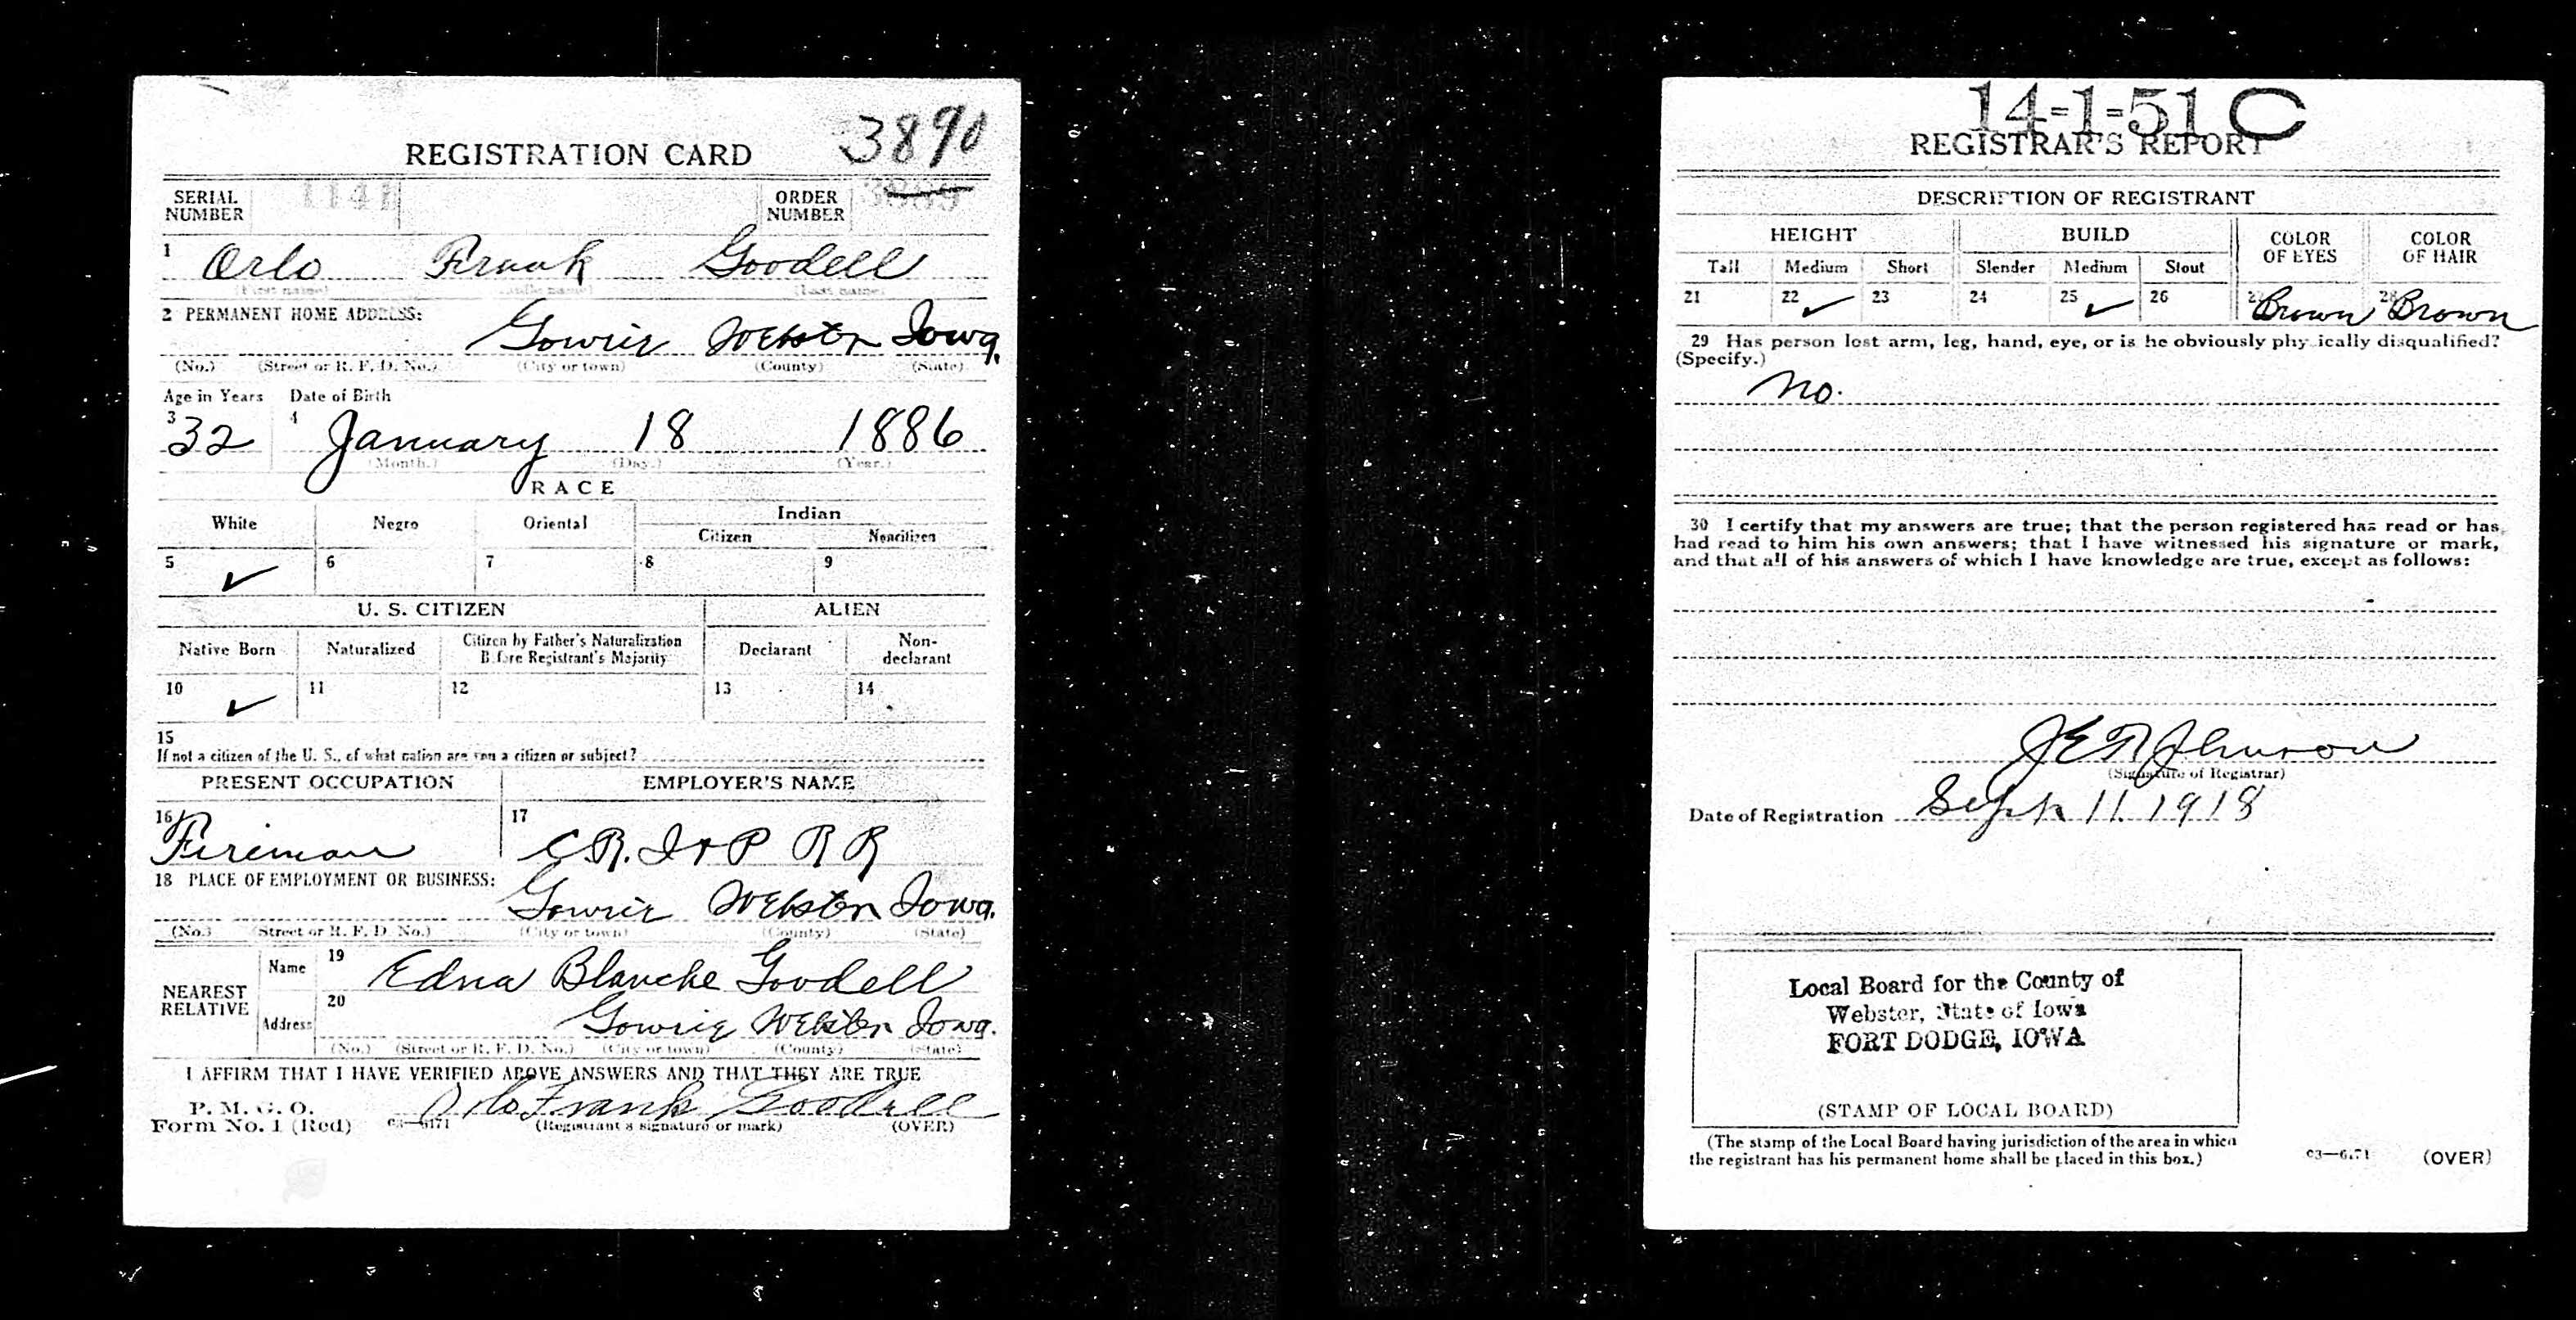 3890
REGISTRATION CARD
SERIAL NUMBER 1141 ORDER NUMBER
1 Orlo Frank Goodell
(First name) (Middle name) (Last name)
2 PERMANENT HOME ADDRESS:
Gowrie Webster Iowa.
(No.) (Street or R. F. D. No.) (City or town) (County) (State)
Age in Years Date of Birth
3 32 4 January 18 1886
(Month.) (Day.) (Year.)
RACE
White Negro Oriental Indian
Citizen Noncitizen
5 ✓ 6 7 8 9
U. S. CITIZEN ALIEN
Native Born Naturalized Citizen by Father's Naturalization Before Registrant's Majority Declarant Non-declarant
10 ✓ 11 12 13 14
15
If not a citizen of the U. S., of what nation are you a citizen or subject?
PRESENT OCCUPATION EMPLOYER'S NAME
16 Fireman 17 C.R. I & P R R
18 PLACE OF EMPLOYMENT OR BUSINESS:
Gowrie Webster Iowa.
(No.) (Street or R. F. D. No.) (City or town) (County) (State)
NEAREST RELATIVE
Name 19 Edna Blanche Goodell
Address 20 Gowrie Webster Iowa.
(No.) (Street or R. F. D. No.) (City or town) (County) (State)
I AFFIRM THAT I HAVE VERIFIED ABOVE ANSWERS AND THAT THEY ARE TRUE
P. M. G. O.
Form No. 1 (Red) 03—6171 Orlo Frank Goodell
(Registrant's signature or mark) (OVER)
14-1-51 C
REGISTRAR'S REPORT
DESCRIPTION OF REGISTRANT
HEIGHT BUILD COLOR OF EYES COLOR OF HAIR
Tall Medium Short Slender Medium Stout
21 22 ✓ 23 24 25 ✓ 26 27 Brown 28 Brown
29 Has person lost arm, leg, hand, eye, or is he obviously physically disqualified?
(Specify.)
No.
30 I certify that my answers are true; that the person registered has read or has
had read to him his own answers; that I have witnessed his signature or mark,
and that all of his answers of which I have knowledge are true, except as follows:
Johnson
(Signature of Registrar)
Date of Registration Sept 11. 1918
Local Board for the County of
Webster, State of Iowa
FORT DODGE, IOWA
(STAMP OF LOCAL BOARD)
(The stamp of the Local Board having jurisdiction of the area in which
the registrant has his permanent home shall be placed in this box.)
03—6171 (OVER)